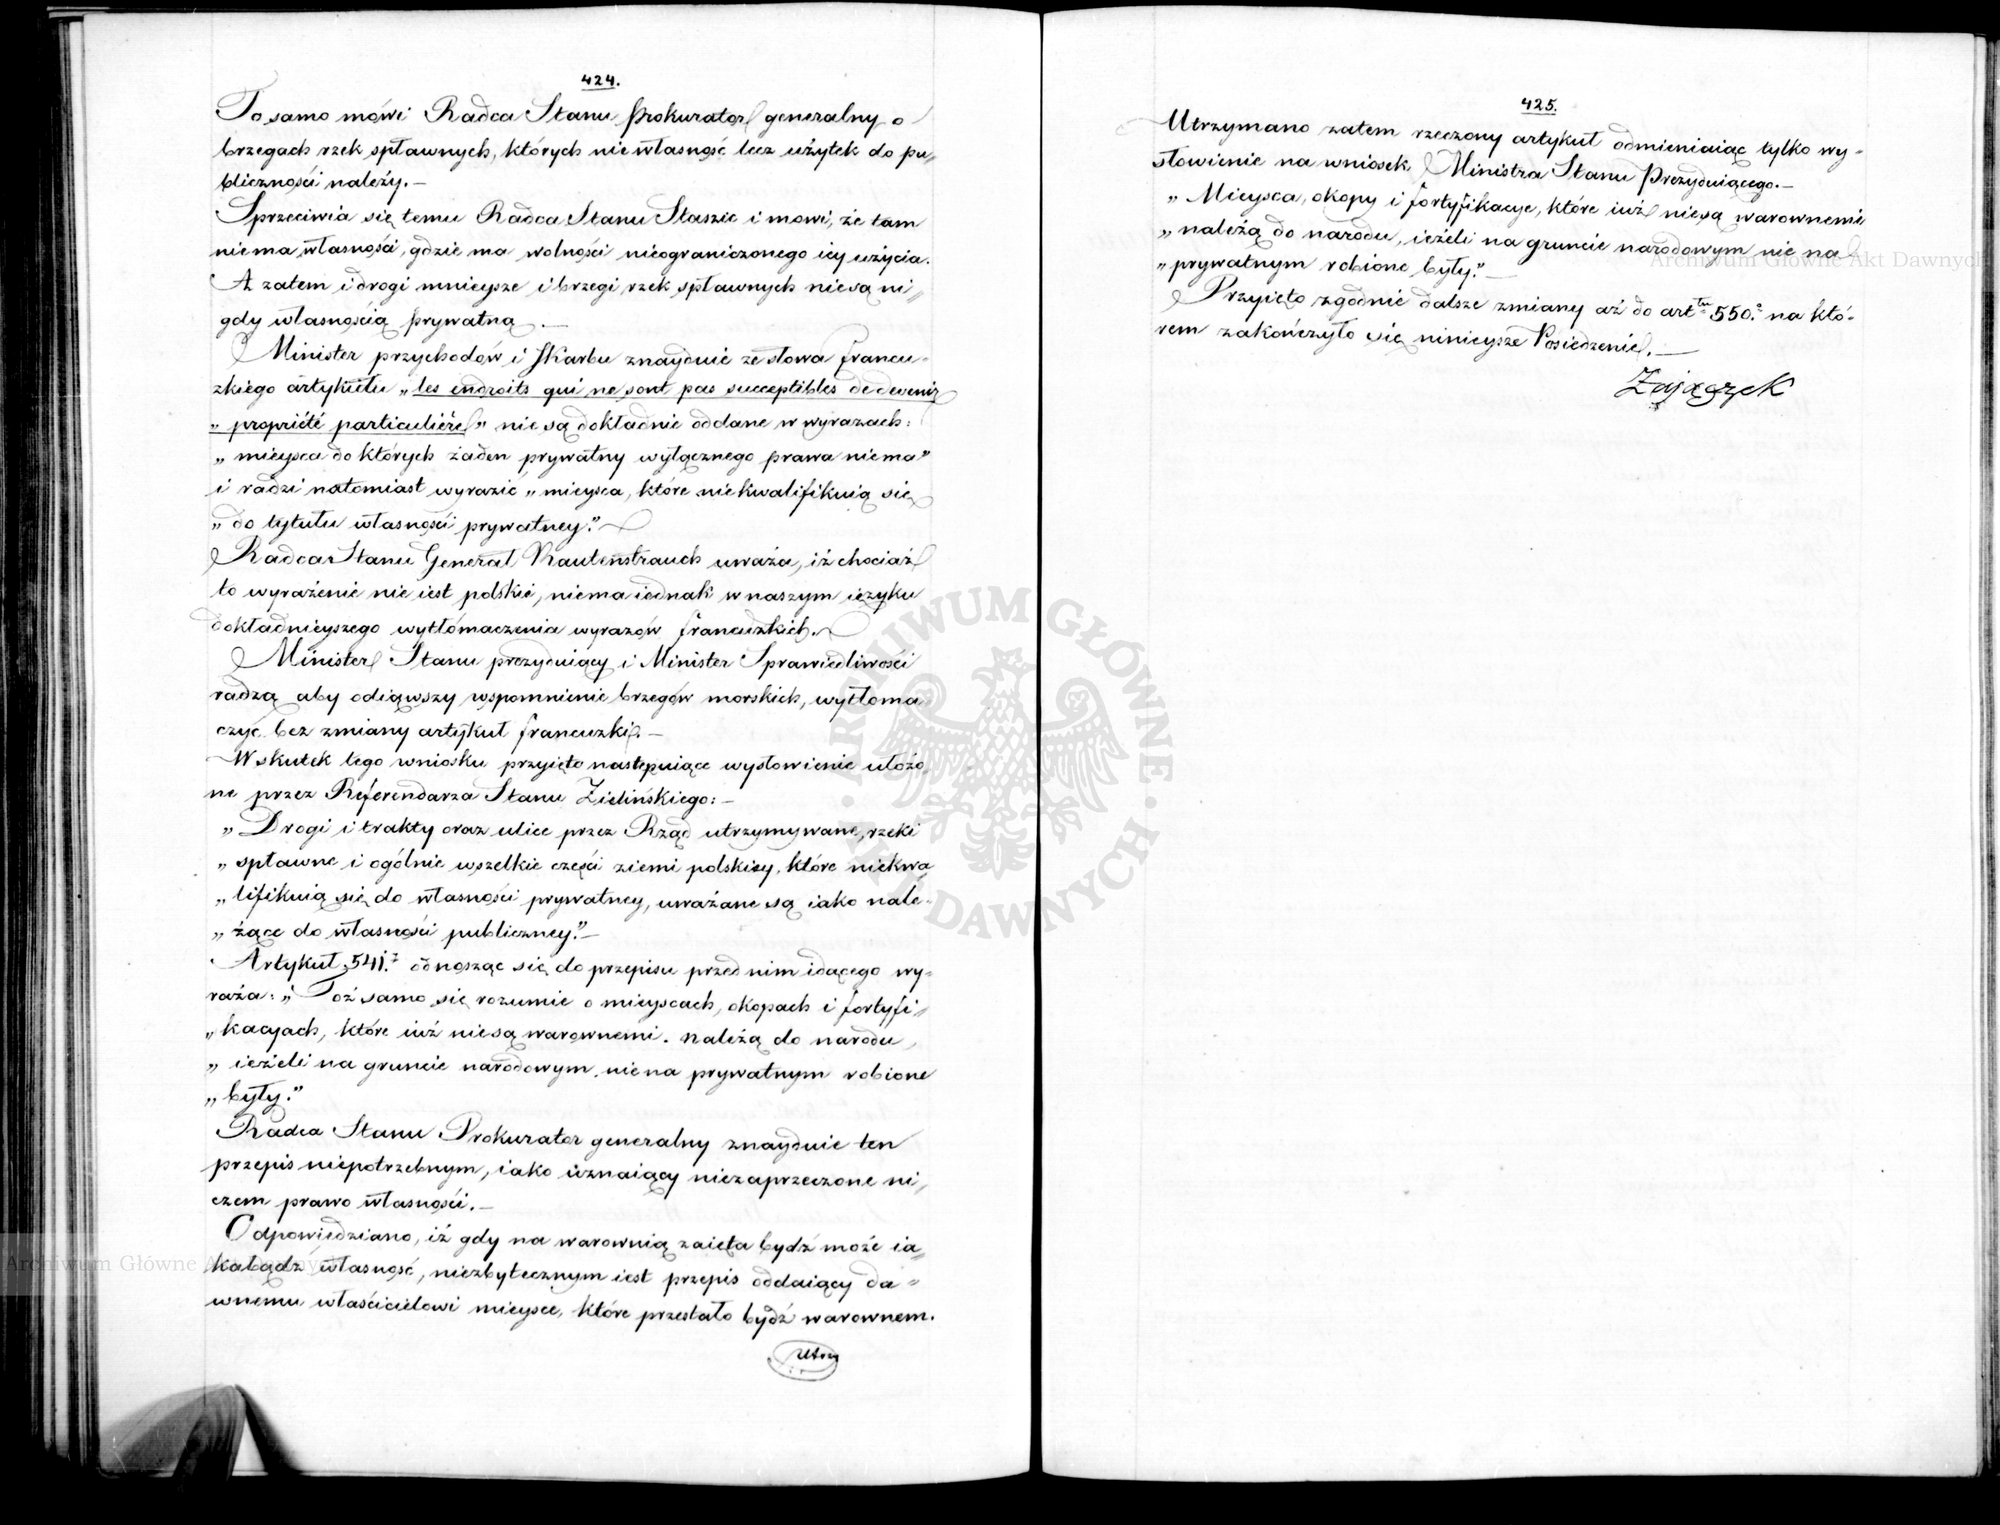 424.
To samo mówi Radca Stanu Prokurator generalny o
brzegach rzek spławnych, których nie własność lecz użytek do pu„
bliczności należy.—
Sprzeciwia się temu Radca Stanu Staszic i mowi, że tam
niema własności, gdzie ma wolności nieograniczonego iey użycia.
A zatem i drogi mnieysze i brzegi rzek spławnych nie są ni„
gdy własnością prywatną.—
Minister przychodów i Skarbu znayduie że słowa francu-
zkiego artykułu „les endroits qui ne sont pas susceptibles de devenir
„propriété particulière” nie są dokładnie oddane w wyrazach:
„mieysca do których żaden prywatny wyłącznego prawa niema”
i radzi natomiast wyrazić „mieysca, które niekwalifikuią się
„do tytułu własności prywatney.”
Radca Stanu Generał Rautenstrauch uważa, iż chociaż
to wyrażenie nie iest polskie, niema iednak w naszym ięzyku
dokładnieyszego wytłómaczenia wyrazów francuzkich.
Minister Stanu prezyduiący i Minister Sprawiedliwości
radzą aby odiąwszy wspomnienie brzegów morskich, wytłoma„
czyć bez zmiany artykuł francuzki.—
W skutek tego wniosku przyięto następuiące wysłowienie ułożo„
ne przez Referendarza Stanu Zielińskiego:—
„Drogi i trakty oraz ulice przez Rząd utrzymywane, rzeki
„spławne i ogólnie wszelkie części ziemi polskiey, które niekwa
„lifikuią się do własności prywatney, uważane są iako nale-
„żące do własności publiczney.”—
Artykuł 541. odnosząc się do przepisu przed nim idącego wy-
raża: „Toż samo się rozumie o mieyscach, okopach i fortyfi„
„kacyach, które iuż nie są warownemi. należą do narodu,
„ieżeli na gruncie narodowym, nie na prywatnym robione
„były.”
Radca Stanu Prokurator generalny znayduie ten
przepis niepotrzebnym, iako uznaiący niezaprzeczone ni„
czem prawo własności.—
Odpowiedziano, iż gdy na warownią zaięta bydź może ia„
kabądź własność, niezbytecznym iest przepis oddaiący da-
wnemu właścicielowi mieysce, które przestało bydź warownem.
Utrzy
425.
Utrzymano zatem rzeczony artykuł odmieniaiąc tylko wy-
słowienie na wniosek Ministra Stanu Prezyduiącego.—
„Mieysca, okopy i fortyfikacye, które iuż nie są warownemi
„należą do narodu, ieżeli na gruncie narodowym nie na
„prywatnym robione były.”—
Przyięto zgodnie dalsze zmiany aż do arttu 550. na któ-
rem zakończyło się ninieysze Posiedzenie.—
Zajączek
ARCHIWUM GŁÓWNE AKT DAWNYCH
Archiwum Główne Akt Dawnych
Archiwum Główne Akt Dawnych